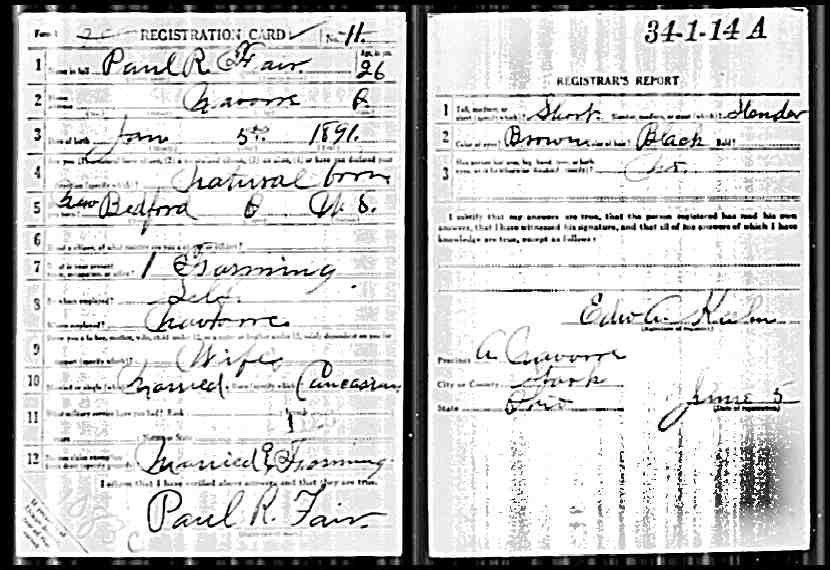 Form 1 REGISTRATION CARD No. 11
1 Name in full Paul R. Fair Age, in yrs. 26
2 Navarre O
3 Date of birth Jan 5th 1891
4 Are you (1) a natural born citizen, (2) a naturalized citizen, (3) an alien, (4) or have you declared your
intention (specify which)? Natural born
5 New Bedford O U. S.
6 If not a citizen, of what country are you a citizen or subject?
7 Farming
8 By whom employed? Self
Where employed? Navarre
9 Have you a father, mother, wife, child under 12, or a sister or brother under 12, solely dependent on you for
support (specify which)? Wife
10 Married or single (which)? Married Race (specify which)? Caucasian
11 What military service have you had? Rank
Nation or State
12 Do you claim exemption Married & Farming
I affirm that I have verified above answers and that they are true.
Paul R. Fair
34-1-14 A
REGISTRAR'S REPORT
1 Tall, medium, or short (specify which)? Short Slender, medium, or stout (which)? Slender
2 Color of eyes? Brown Color of hair? Black Bald?
3 Has person lost arm, leg, hand, foot, or both
eyes, or is he otherwise disabled (specify)? No.
I certify that my answers are true, that the person registered has read his own
answers, that I have witnessed his signature, and that all of his answers of which I have
knowledge are true, except as follows:
Edw A.
(Signature of registrar)
Precinct A Navarre
City or County Stark
State Ohio June 5
(Date of registration)